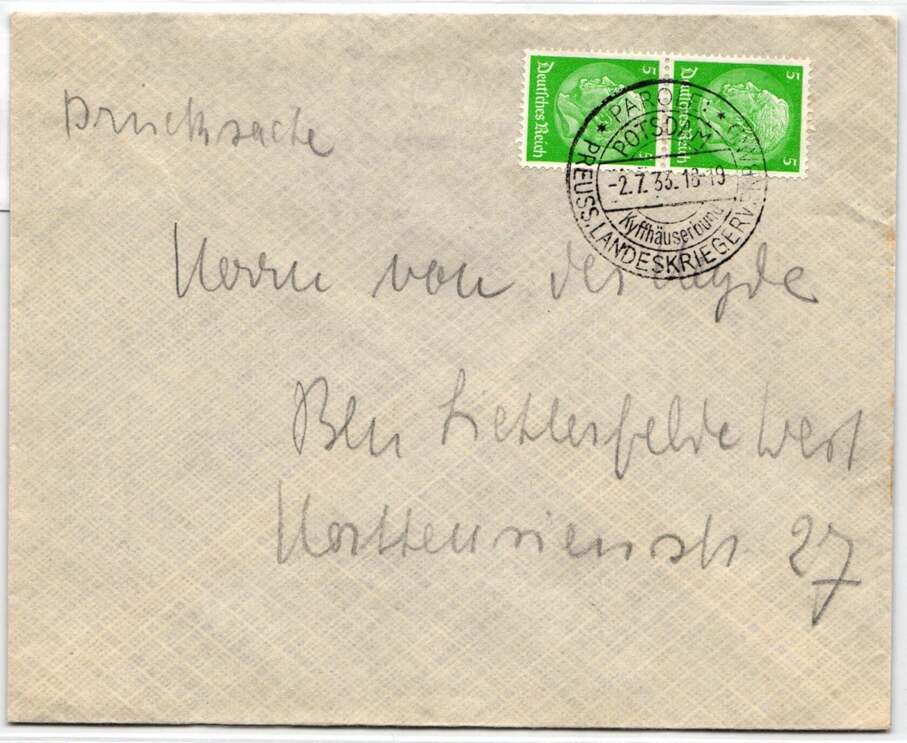 Drucksache
5 5
Deutsches Reich
5 5
Deutsches Reich
POTSDAM
-2.7.33.18-19
Kyffhäuserbund
PREUSS. LANDESKRIEGERV.
Herrn von der Heyde
Bln Lichterfelde West
Hortensienstr 27